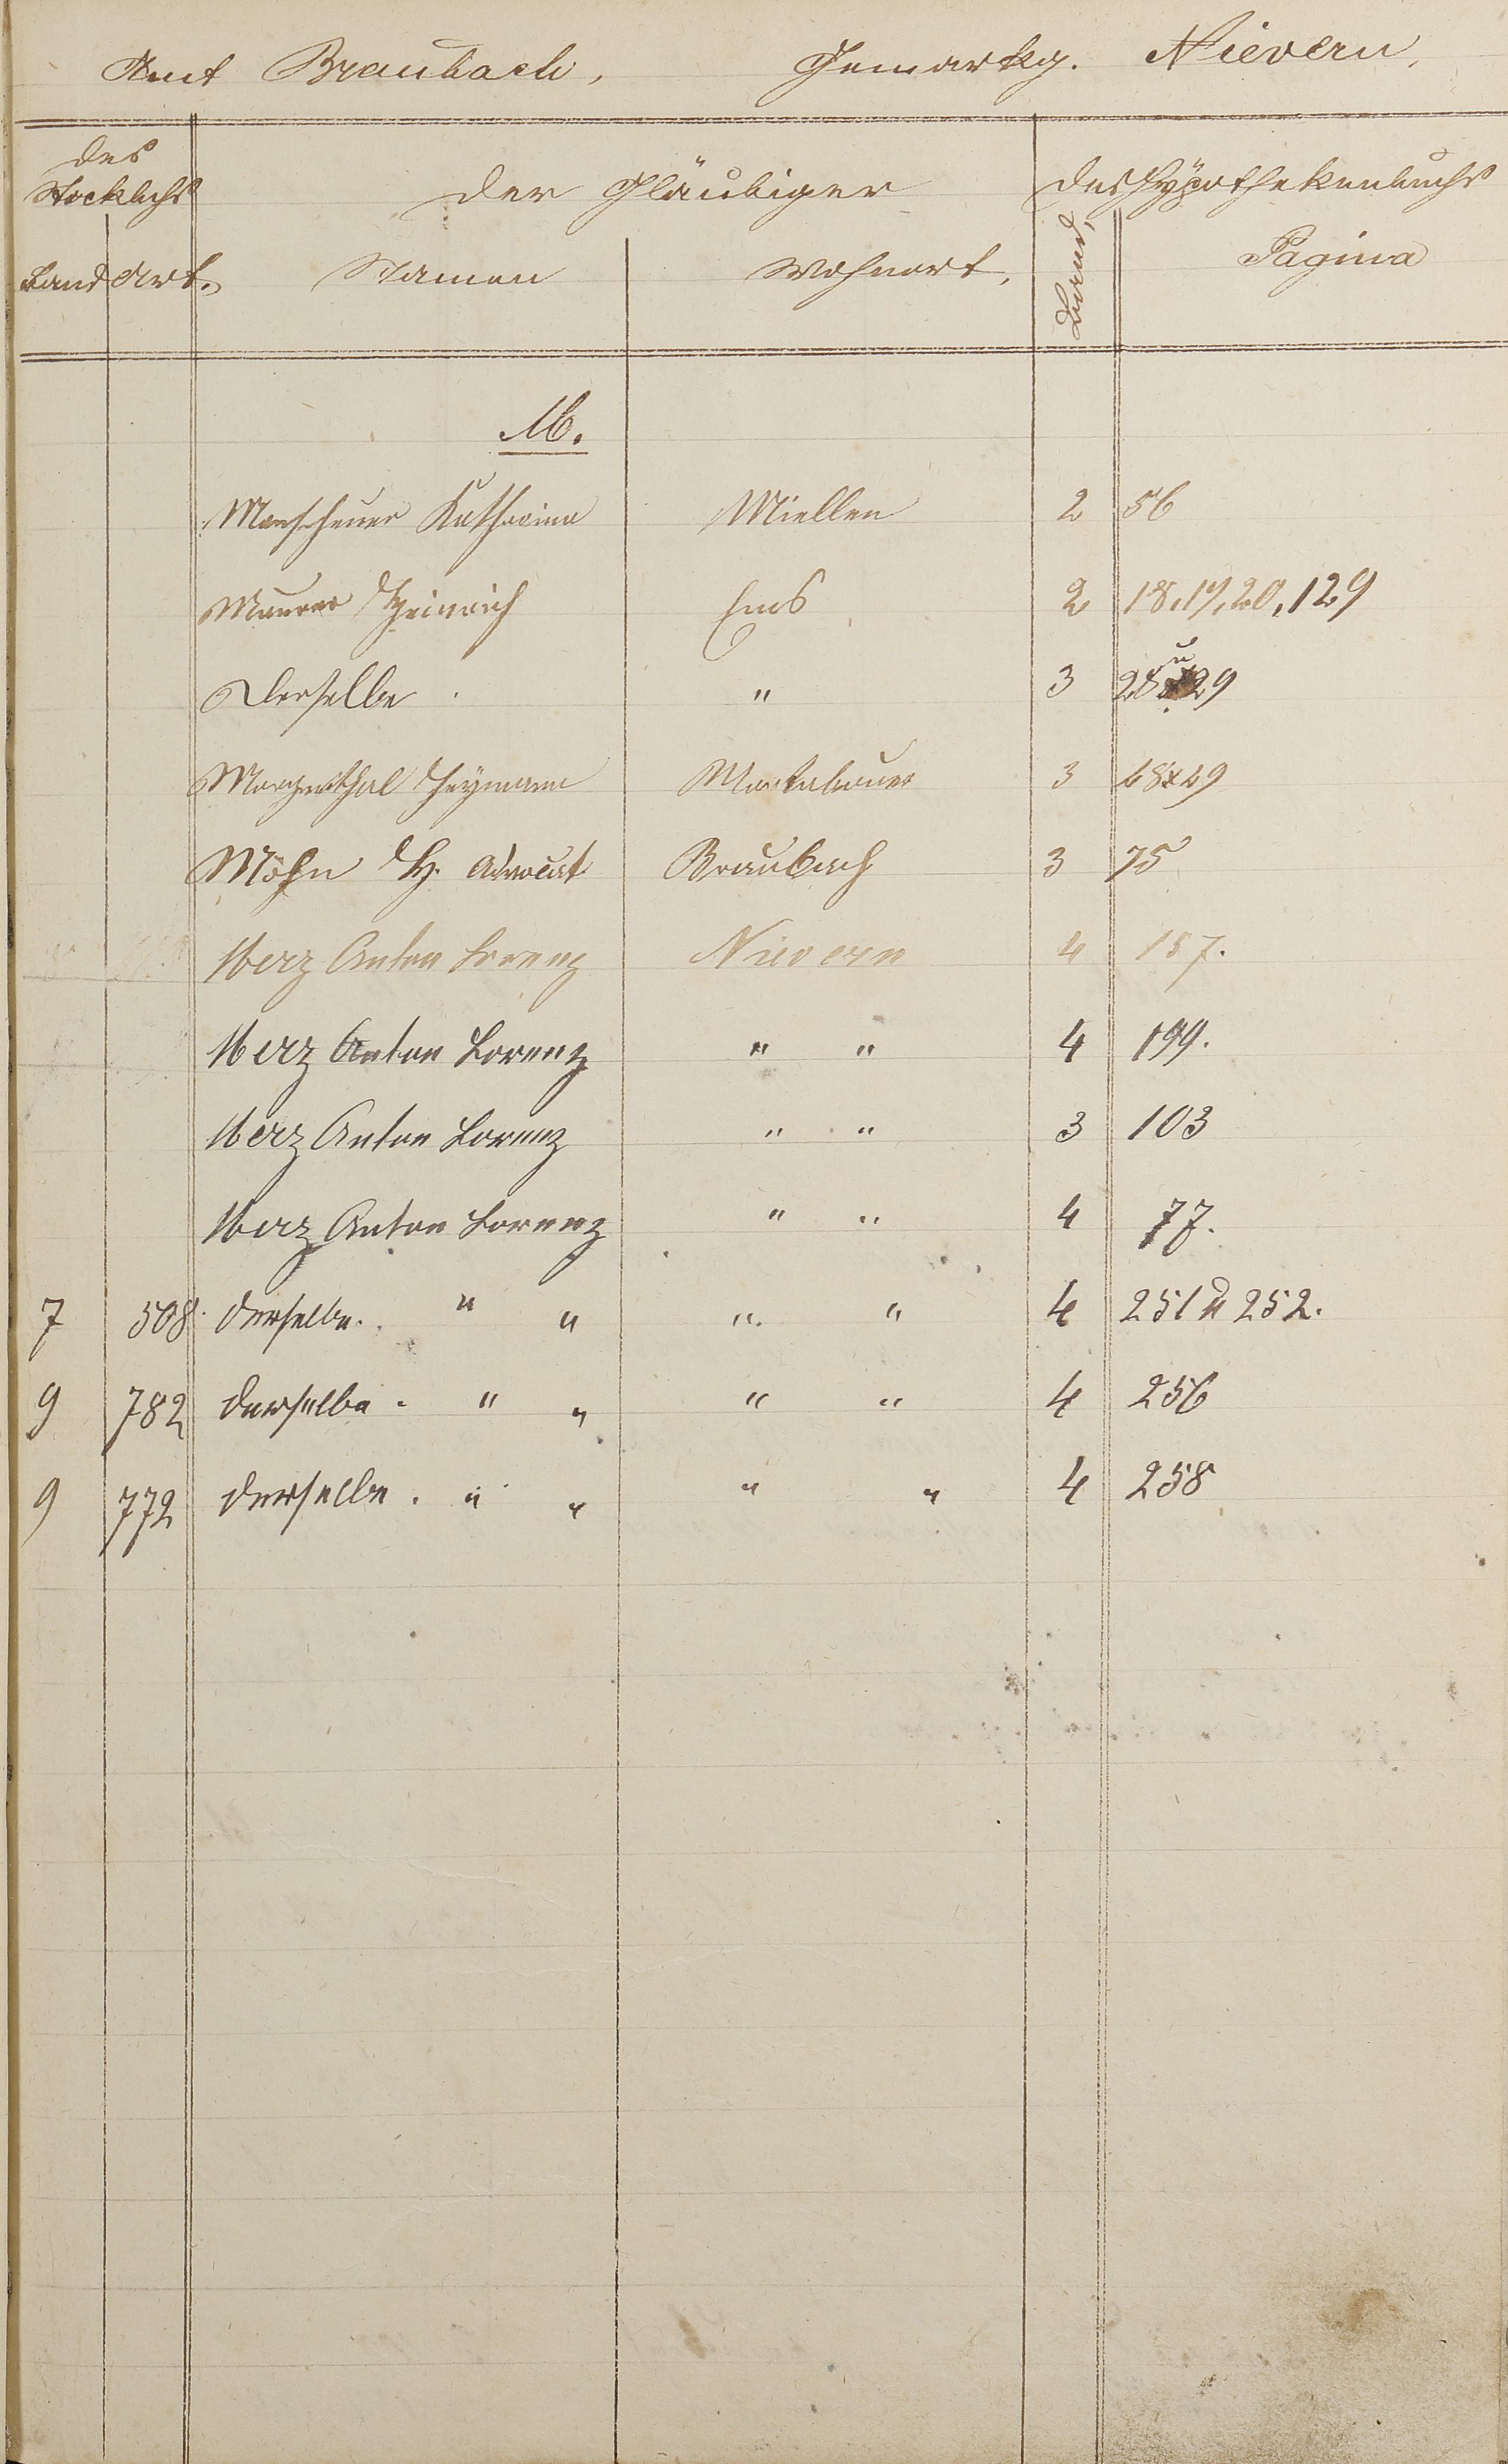 Amt Braubach, Gemarkg. Nievern,
des Stockbchs der Gläubiger des Hypothekenbuchs
Band Art. Namen Wohnort. Band, Pagina
M.
Katharina Miellen 2 56
Maurer Heinrich Ems 2 18, 19, 20, 129
Derselbe " 3 28 u 29
Heymann Montabaur 3 48 & 49
Möhn H. Advocat Braubach 3 75
Merz Anton Lorenz Nievern 4 157.
Merz Anton Lorenz " " 4 199.
Merz Anton Lorenz " " 3 103
Merz Anton Lorenz " " 4 77.
7 508. derselbe. " " " " 4 251 u 252.
9 782 derselbe. " " " " 4 256
9 772 derselbe. " " " " 4 258